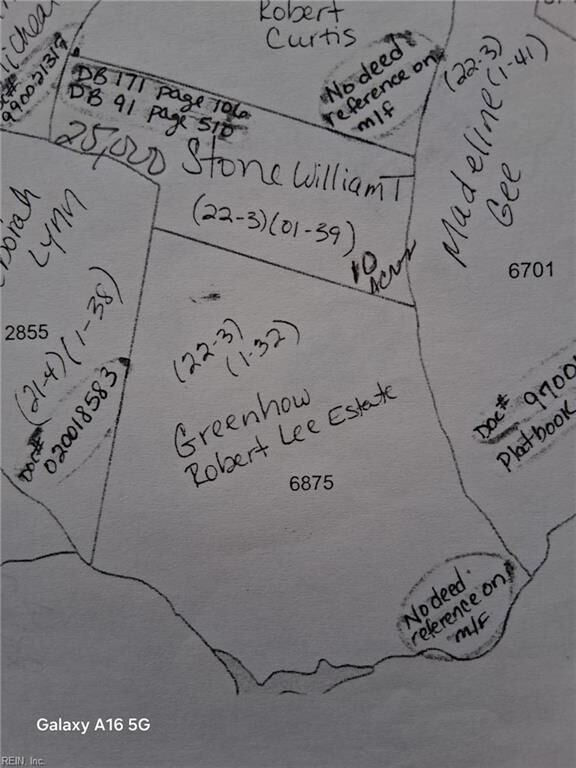 Robert
Curtis
Doc#
990021317
DB 171 page 106
DB 91 page 510
No deed
reference on
m/f
(22-3)
(1-41)
Madeline
Gee
25,000
Stone William T
(22-3)(01-39)
10
Acres
6701
Lynn
2855
(21-4)(1-38)
Doc#
020018583
(22-3)
(1-32)
Greenhow
Robert Lee Estate
6875
Doc#
Platbook
No deed
reference on
m/f
Galaxy A16 5G
REIN, Inc.